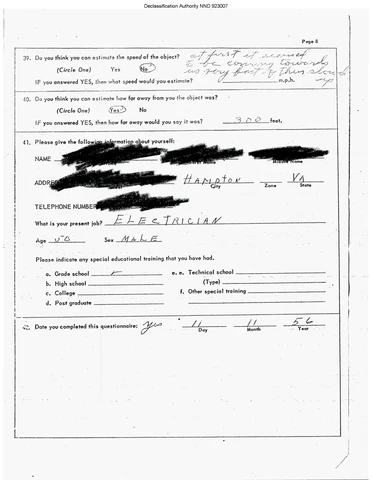 Declassification Authority NND 923007
Page 8
39. Do you think you can estimate the speed of the object?
(Circle One) Yes No
IF you answered YES, then what speed would you estimate? m.p.h.
at first it seemed
to be coming towards
us very fast & then slowed
up
40. Do you think you can estimate how far away from you the object was?
(Circle One) Yes No
IF you answered YES, then how far away would you say it was? 300 feet.
41. Please give the following information about yourself:
NAME
ADDRESS HAMPTON VA
City Zone State
TELEPHONE NUMBER
What is your present job? ELECTRICIAN
Age Sex MALE
Please indicate any special educational training that you have had.
a. Grade school
b. High school
c. College
d. Post graduate
e. Technical school
(Type)
f. Other special training
42. Date you completed this questionnaire: yes 11 11 56
Day Month Year